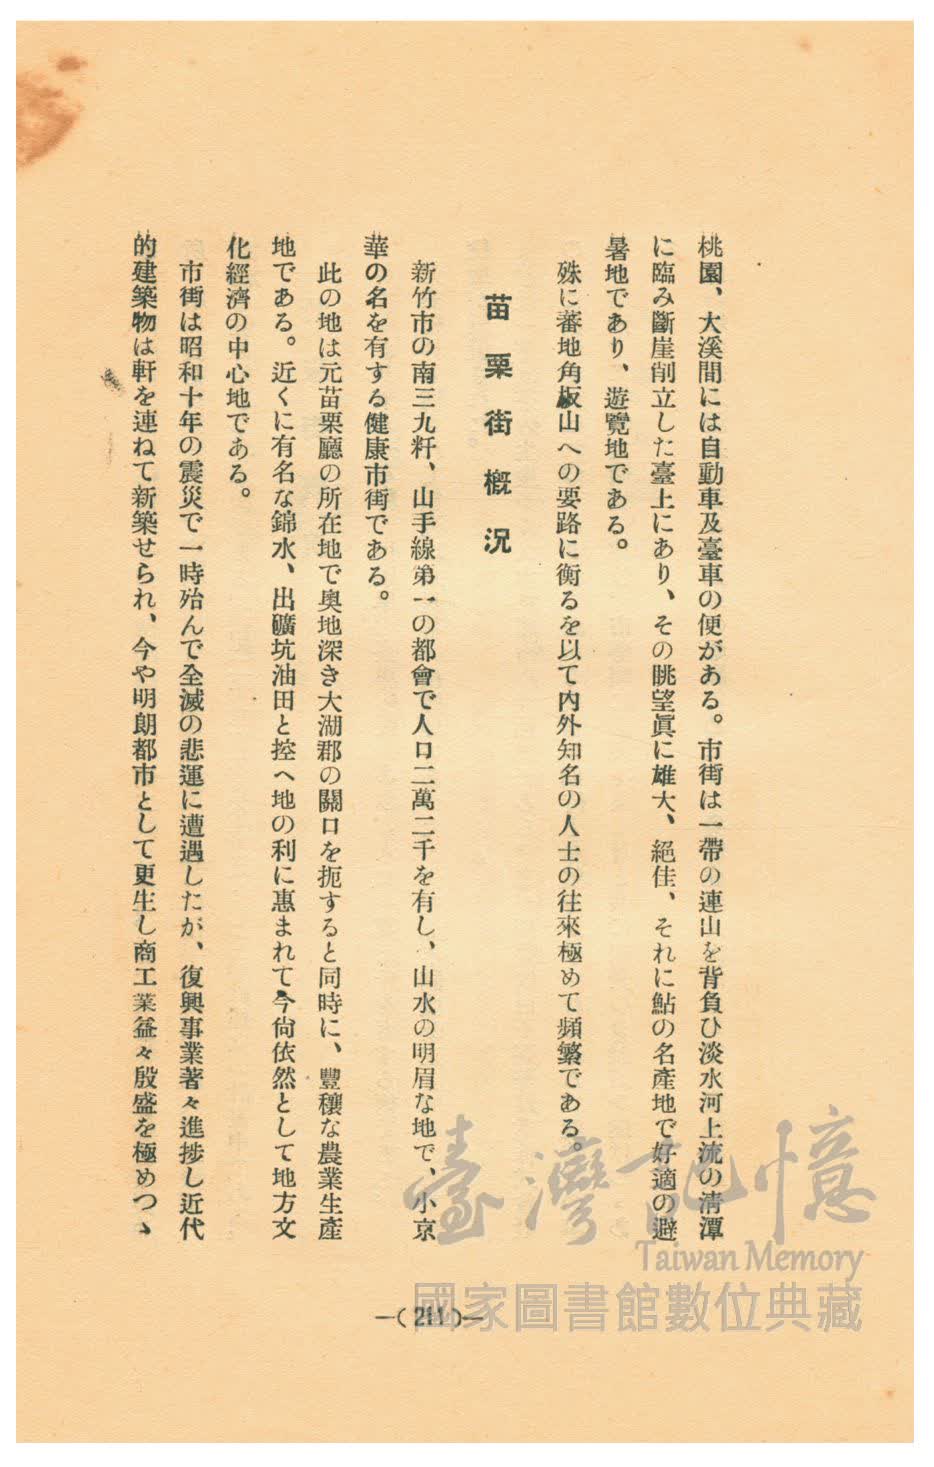 桃園、大溪間には自動車及臺車の便がある。市街は一帶の連山を背負ひ淡水河上流の清潭
に臨み斷崖削立した臺上にあり、その眺望眞に雄大、絕佳、それに鮎の名產地で好適の避
暑地であり、遊覽地である。
殊に蕃地角板山への要路に衝るを以て內外知名の人士の往來極めて頻繁である。
苗栗街概況
新竹市の南三九粁、山手線第一の都會で人口二萬二千を有し、山水の明眉な地で、小京
華の名を有する健康市街である。
此の地は元苗栗廳の所在地で奧地深き大湖郡の關口を扼すると同時に、豐穰な農業生產
地である。近くに有名な錦水、出礦坑油田と控へ地の利に惠まれて今尙依然として地方文
化經濟の中心地である。
市街は昭和十年の震災で一時殆んで全滅の悲運に遭遇したが、復興事業著々進捗し近代
的建築物は軒を連ねて新築せられ、今や明朗都市として更生し商工業益々殷盛を極めつゝ
—( 211 )—
臺灣記憶
Taiwan Memory
國家圖書館數位典藏